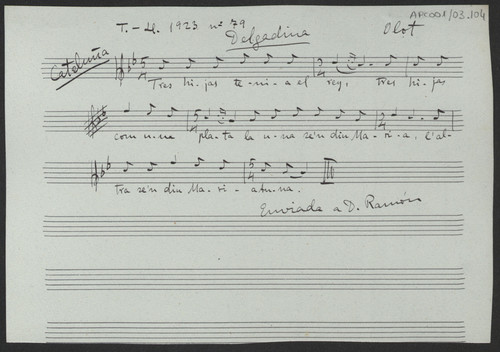 APCO01/03.104
T.-4. 1923 nº 79
Delgadina
Olot
Cataluña
Tres hi-jas te-ni-a el rey, tres hi-jas
com u-na pla-ta la u-na se'n diu Ma-ri-a, l'al-
tra se'n diu Ma-ri-atu-na.
Enviada a D. Ramón